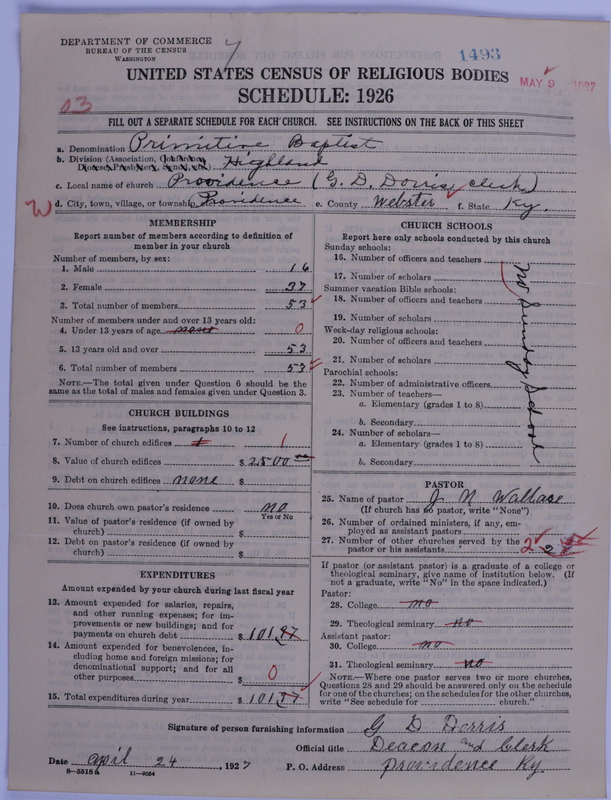 DEPARTMENT OF COMMERCE
BUREAU OF THE CENSUS
WASHINGTON
1493
MAY 9 1927
UNITED STATES CENSUS OF RELIGIOUS BODIES
SCHEDULE: 1926
03
FILL OUT A SEPARATE SCHEDULE FOR EACH CHURCH. SEE INSTRUCTIONS ON THE BACK OF THIS SHEET
a. Denomination Primitive Baptist
b. Division (Association, Conference,
Diocese, Presbytery, Synod, etc.) Highland
c. Local name of church Providence (G. D. Dorris, clerk)
d. City, town, village, or township Providence e. County Webster f. State Ky.
MEMBERSHIP
Report number of members according to definition of
member in your church
Number of members, by sex:
1. Male 16
2. Female 37
3. Total number of members 53
Number of members under and over 13 years old:
4. Under 13 years of age none 0
5. 13 years old and over 53
6. Total number of members 53
NOTE.—The total given under Question 6 should be the
same as the total of males and females given under Question 3.
CHURCH BUILDINGS
See instructions, paragraphs 10 to 12
7. Number of church edifices 1 1
8. Value of church edifices $ 2500 00
9. Debt on church edifices none $
10. Does church own pastor's residence no
Yes or No
11. Value of pastor's residence (if owned by
church) $
12. Debt on pastor's residence (if owned by
church) $
EXPENDITURES
Amount expended by your church during last fiscal year
13. Amount expended for salaries, repairs,
and other running expenses; for im-
provements or new buildings; and for
payments on church debt $ 101.97
14. Amount expended for benevolences, in-
cluding home and foreign missions; for
denominational support; and for all
other purposes $ 0
15. Total expenditures during year $ 101.97
CHURCH SCHOOLS
Report here only schools conducted by this church
Sunday schools:
16. Number of officers and teachers
17. Number of scholars
Summer vacation Bible schools:
18. Number of officers and teachers
19. Number of scholars
Week-day religious schools:
20. Number of officers and teachers
21. Number of scholars
Parochial schools:
22. Number of administrative officers
23. Number of teachers—
a. Elementary (grades 1 to 8)
b. Secondary
24. Number of scholars—
a. Elementary (grades 1 to 8)
b. Secondary
no Sunday School
PASTOR
25. Name of pastor J N Wallase
(If church has no pastor, write "None")
26. Number of ordained ministers, if any, em-
ployed as assistant pastors
27. Number of other churches served by the
pastor or his assistants 2 2
If pastor (or assistant pastor) is a graduate of a college or
theological seminary, give name of institution below. (If
not a graduate, write "No" in the space indicated.)
Pastor:
28. College no
29. Theological seminary no
Assistant pastor:
30. College no
31. Theological seminary no
NOTE.—Where one pastor serves two or more churches,
Questions 28 and 29 should be answered only on the schedule
for one of the churches; on the schedules for the other churches,
write "See schedule for church."
Signature of person furnishing information G D Dorris
Official title Deacon and Clerk
Date April 24, 1927 P. O. Address Providence Ky.
8—5518a 11—9034